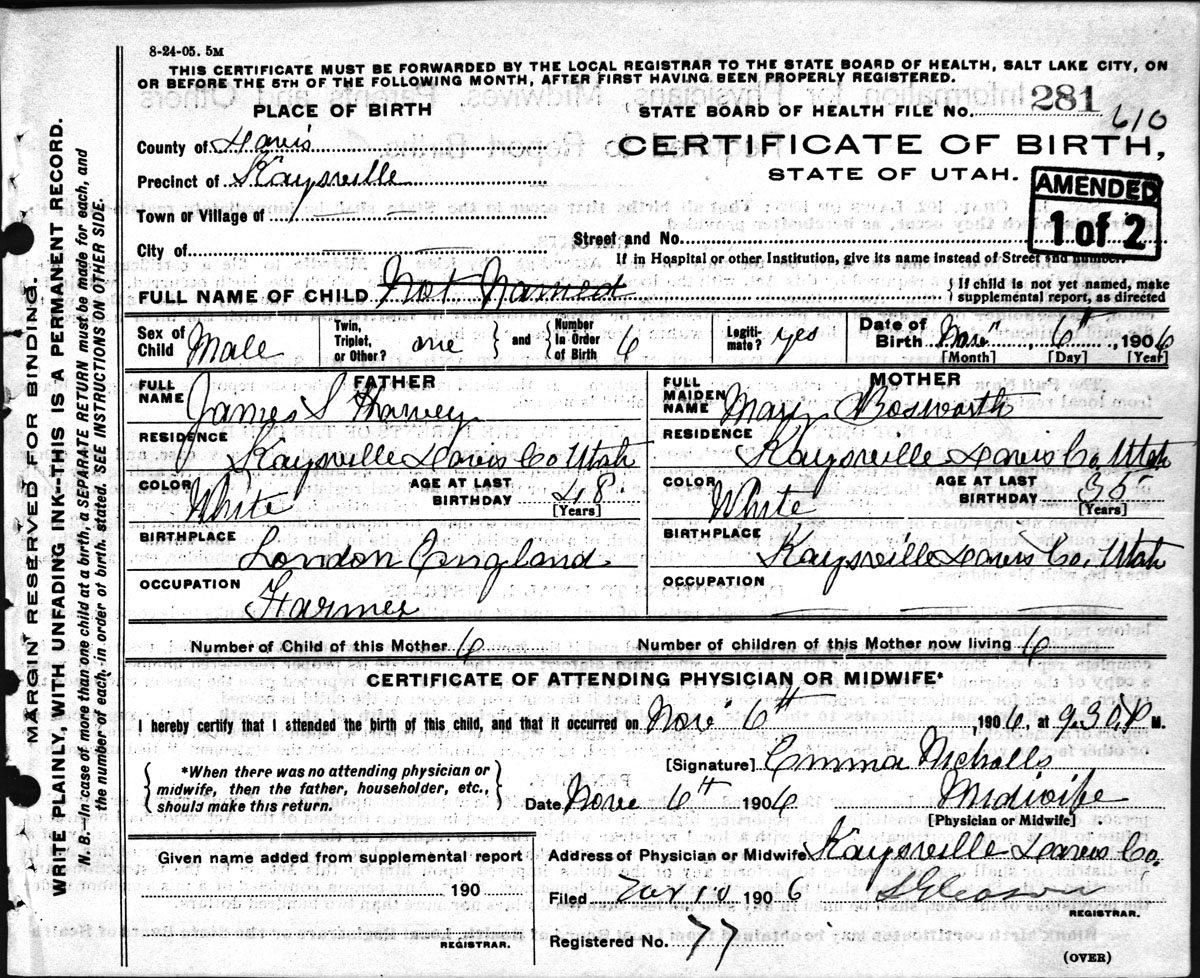 8-24-05. 5M
THIS CERTIFICATE MUST BE FORWARDED BY THE LOCAL REGISTRAR TO THE STATE BOARD OF HEALTH, SALT LAKE CITY, ON
OR BEFORE THE 5TH OF THE FOLLOWING MONTH, AFTER FIRST HAVING BEEN PROPERLY REGISTERED.
PLACE OF BIRTH
STATE BOARD OF HEALTH FILE No. 281
610
County of Davis
CERTIFICATE OF BIRTH,
Precinct of Kaysville
STATE OF UTAH.
AMENDED
1 of 2
Town or Village of
City of
Street and No.
If in Hospital or other Institution, give its name instead of Street and number.
FULL NAME OF CHILD Not Named
If child is not yet named, make
supplemental report, as directed
Sex of Child Male
Twin, Triplet, or Other? one
and
Number In Order of Birth 6
Legiti-mate? yes
Date of Birth Nov 6th, 1906
[Month] [Day] [Year]
FATHER
FULL NAME James S Harvey
RESIDENCE
Kaysville Davis Co Utah
COLOR White
AGE AT LAST BIRTHDAY 48
[Years]
BIRTHPLACE
London England
OCCUPATION
Farmer
MOTHER
FULL MAIDEN NAME Mary Bosworth
RESIDENCE
Kaysville Davis Co, Utah
COLOR White
AGE AT LAST BIRTHDAY 35
[Years]
BIRTHPLACE
Kaysville Davis Co, Utah
OCCUPATION
Number of Child of this Mother 6
Number of children of this Mother now living 6
CERTIFICATE OF ATTENDING PHYSICIAN OR MIDWIFE*
I hereby certify that I attended the birth of this child, and that it occurred on Nov 6th 1906, at 9.30 P M.
*When there was no attending physician or
midwife, then the father, householder, etc.,
should make this return.
[Signature] Emma Nicholls
Date Nove 6th 1906
Midwife
[Physician or Midwife]
Given name added from supplemental report
190
REGISTRAR.
Address of Physician or Midwife Kaysville Davis Co.
Filed Nov 10 1906
REGISTRAR.
Registered No. 77
(OVER)
MARGIN RESERVED FOR BINDING.
WRITE PLAINLY, WITH UNFADING INK--THIS IS A PERMANENT RECORD.
N. B.--In case of more than one child at a birth, a SEPARATE RETURN must be made for each, and
the number of each, in order of birth, stated. SEE INSTRUCTIONS ON OTHER SIDE.